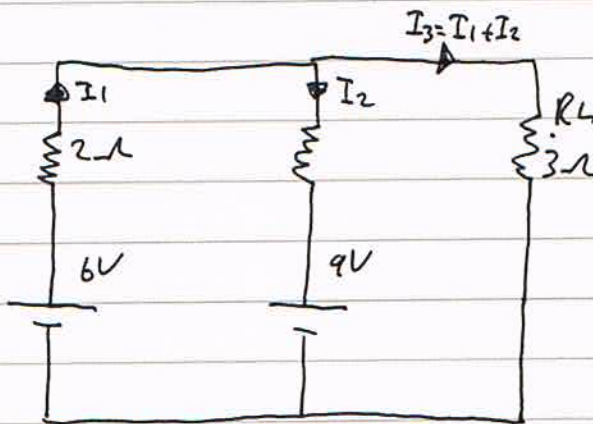 I3=I1+I2
I1
I2
2Ω
RL
3Ω
6V
9V